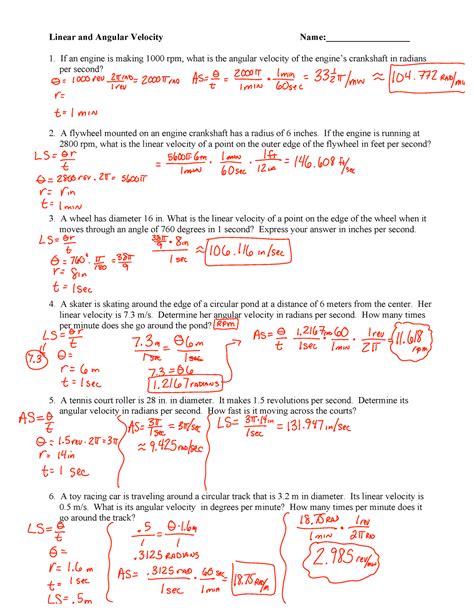 Linear and Angular Velocity Name:
1. If an engine is making 1000 rpm, what is the angular velocity of the engine's crankshaft in radians
per second?
θ = 1000 rev · 2π rad/1 rev = 2000π rad AS = θ/t = 2000π/1 min · 1 min/60 sec = 33⅓π/sec ≈ 104.772 rad/sec
r =
t = 1 min
2. A flywheel mounted on an engine crankshaft has a radius of 6 inches. If the engine is running at
2800 rpm, what is the linear velocity of a point on the outer edge of the flywheel in feet per second?
LS = θr/t = 5600π·6in/1 min · 1 min/60 sec · 1 ft/12 in = 146.608 ft/sec
θ = 2800 rev · 2π = 5600π
r =
t = 1 min
3. A wheel has diameter 16 in. What is the linear velocity of a point on the edge of the wheel when it
moves through an angle of 760 degrees in 1 second? Express your answer in inches per second.
LS = θr/t 38π/9 · 8in/1 sec ≈ 106.116 in/sec
θ = 760° · π/180 = 38π/9
r = 8in
t = 1 sec
4. A skater is skating around the edge of a circular pond at a distance of 6 meters from the center. Her
linear velocity is 7.3 m/s. Determine her angular velocity in radians per second. How many times
per minute does she go around the pond? RPM
LS = θr/t 7.3m/1 sec = θ6m/1 sec AS = θ/t = 1.2167/1 sec · 60/1 min · 1 rev/2π = 11.618 rpm
7.3 θ =
r = 6m 7.3 = θ6
t = 1 sec 1.2167 radians
5. A tennis court roller is 28 in. in diameter. It makes 1.5 revolutions per second. Determine its
angular velocity in radians per second. How fast is it moving across the courts?
AS = θ/t AS = 3π/1 sec = 3π/sec LS = 3π·14in/1 sec = 131.947 in/sec
θ = 1.5 rev · 2π = 3π ≈ 9.425 rad/sec
r = 14in
t = 1 sec
6. A toy racing car is traveling around a circular track that is 3.2 m in diameter. Its linear velocity is
0.5 m/s. What is its angular velocity in degrees per minute? How many times per minute does it
go around the track?
LS = θr/t .5/1 = θ·1.6m/1 18.75 rad/1 min · 1 rev/2π rad
θ = .3125 radians 2.985 rev/min
r = 1.6m AS = .3125 rad/1 sec · 60 sec/1 min = 18.75 rad/m
t = 1 sec
LS = .5m